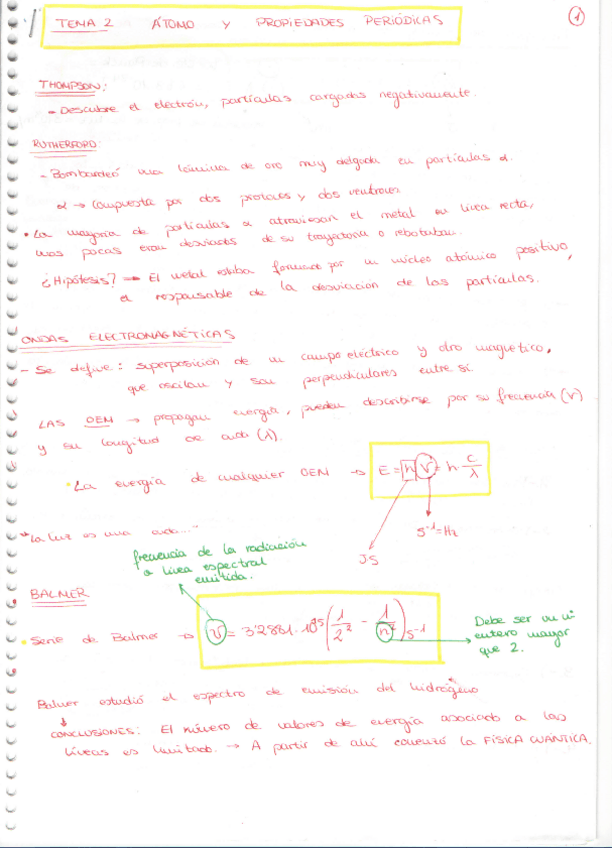 TEMA 2 ÁTOMO Y PROPIEDADES PERIÓDICAS
1
THOMPSON:
- Descubre el electrón, partículas cargadas negativamente.
RUTHERFORD:
- Bombardeó una lámina de oro muy delgada en partículas α.
α → Compuesta por dos protones y dos neutrones
• La mayoría de partículas α atraviesan el metal en línea recta,
unas pocas eran desviadas de su trayectoria o rebotaban.
¿Hipótesis? → El metal estaba formado por un núcleo atómico positivo,
el responsable de la desviación de las partículas.
ONDAS ELECTROMAGNÉTICAS
- Se define: superposición de un campo eléctrico y otro magnético,
que oscilan y son perpendiculares entre sí.
LAS OEM → propagan energía, pueden describirse por su frecuencia (ν)
y su longitud de onda (λ).
• La energía de cualquier OEM → E = h ν = h c/λ
s⁻¹ = Hz
J·S
"La luz es una onda..."
frecuencia de la radiación
o línea espectral
emitida.
BALMER
• Serie de Balmer → ν = 3'2881·10¹⁵ (1/2² - 1/n²) s⁻¹
Debe ser un nº
entero mayor
que 2.
Balmer estudió el espectro de emisión del hidrógeno
CONCLUSIONES: El número de valores de energía asociado a las
líneas es limitado. → A partir de ahí comenzó la FÍSICA CUÁNTICA.